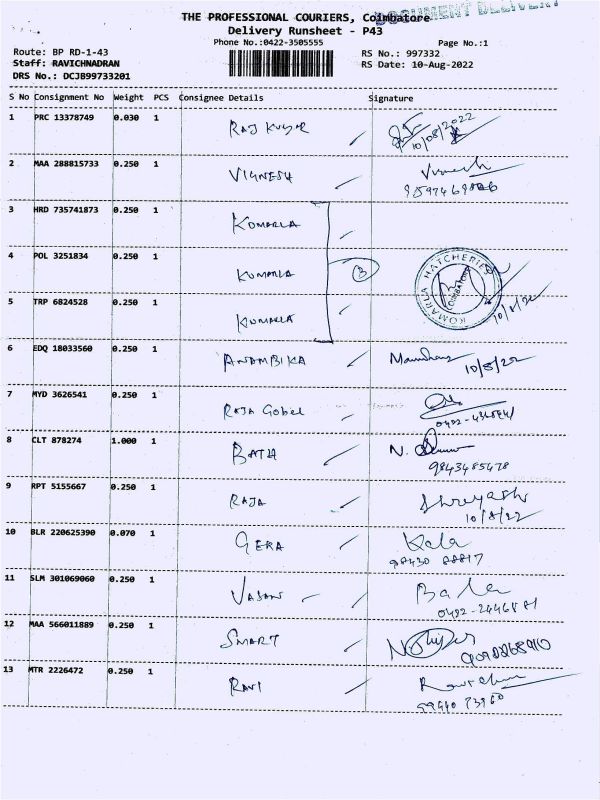 DOCUMENT DELIVERY
THE PROFESSIONAL COURIERS, Coimbatore
Delivery Runsheet - P43
Phone No.:0422-3505555
Page No.:1
Route: BP RD-1-43
RS No.: 997332
Staff: RAVICHNADRAN
RS Date: 10-Aug-2022
DRS No.: DCJB99733201
S No Consignment No Weight PCS Consignee Details Signature
1 PRC 13378749 0.030 1 RAJ KUMAR 10/08/2022
2 MAA 288815733 0.250 1 VIGNESH
3 HRD 735741873 0.250 1 KOMARLA
4 POL 3251834 0.250 1 KOMARLA 3
KOMARLA HATCHERIES
COIMBATORE
5 TRP 6824528 0.250 1 KOMARLA 10/8/22
6 EDQ 18033560 0.250 1 ANAMBIKA 10/8/22
7 MYD 3626541 0.250 1 RAJA Gobel
8 CLT 878274 1.000 1 BATA N.
9843485478
9 RPT 5155667 0.250 1 RAJA Shreyash
10/8/22
10 BLR 220625390 0.070 1 GERA Kala
98430 88817
11 SLM 301069060 0.250 1 VASAN Bala
0422-2446881
12 MAA 566011889 0.250 1 SMART
13 MTR 2226472 0.250 1 RAVI
99440 73960